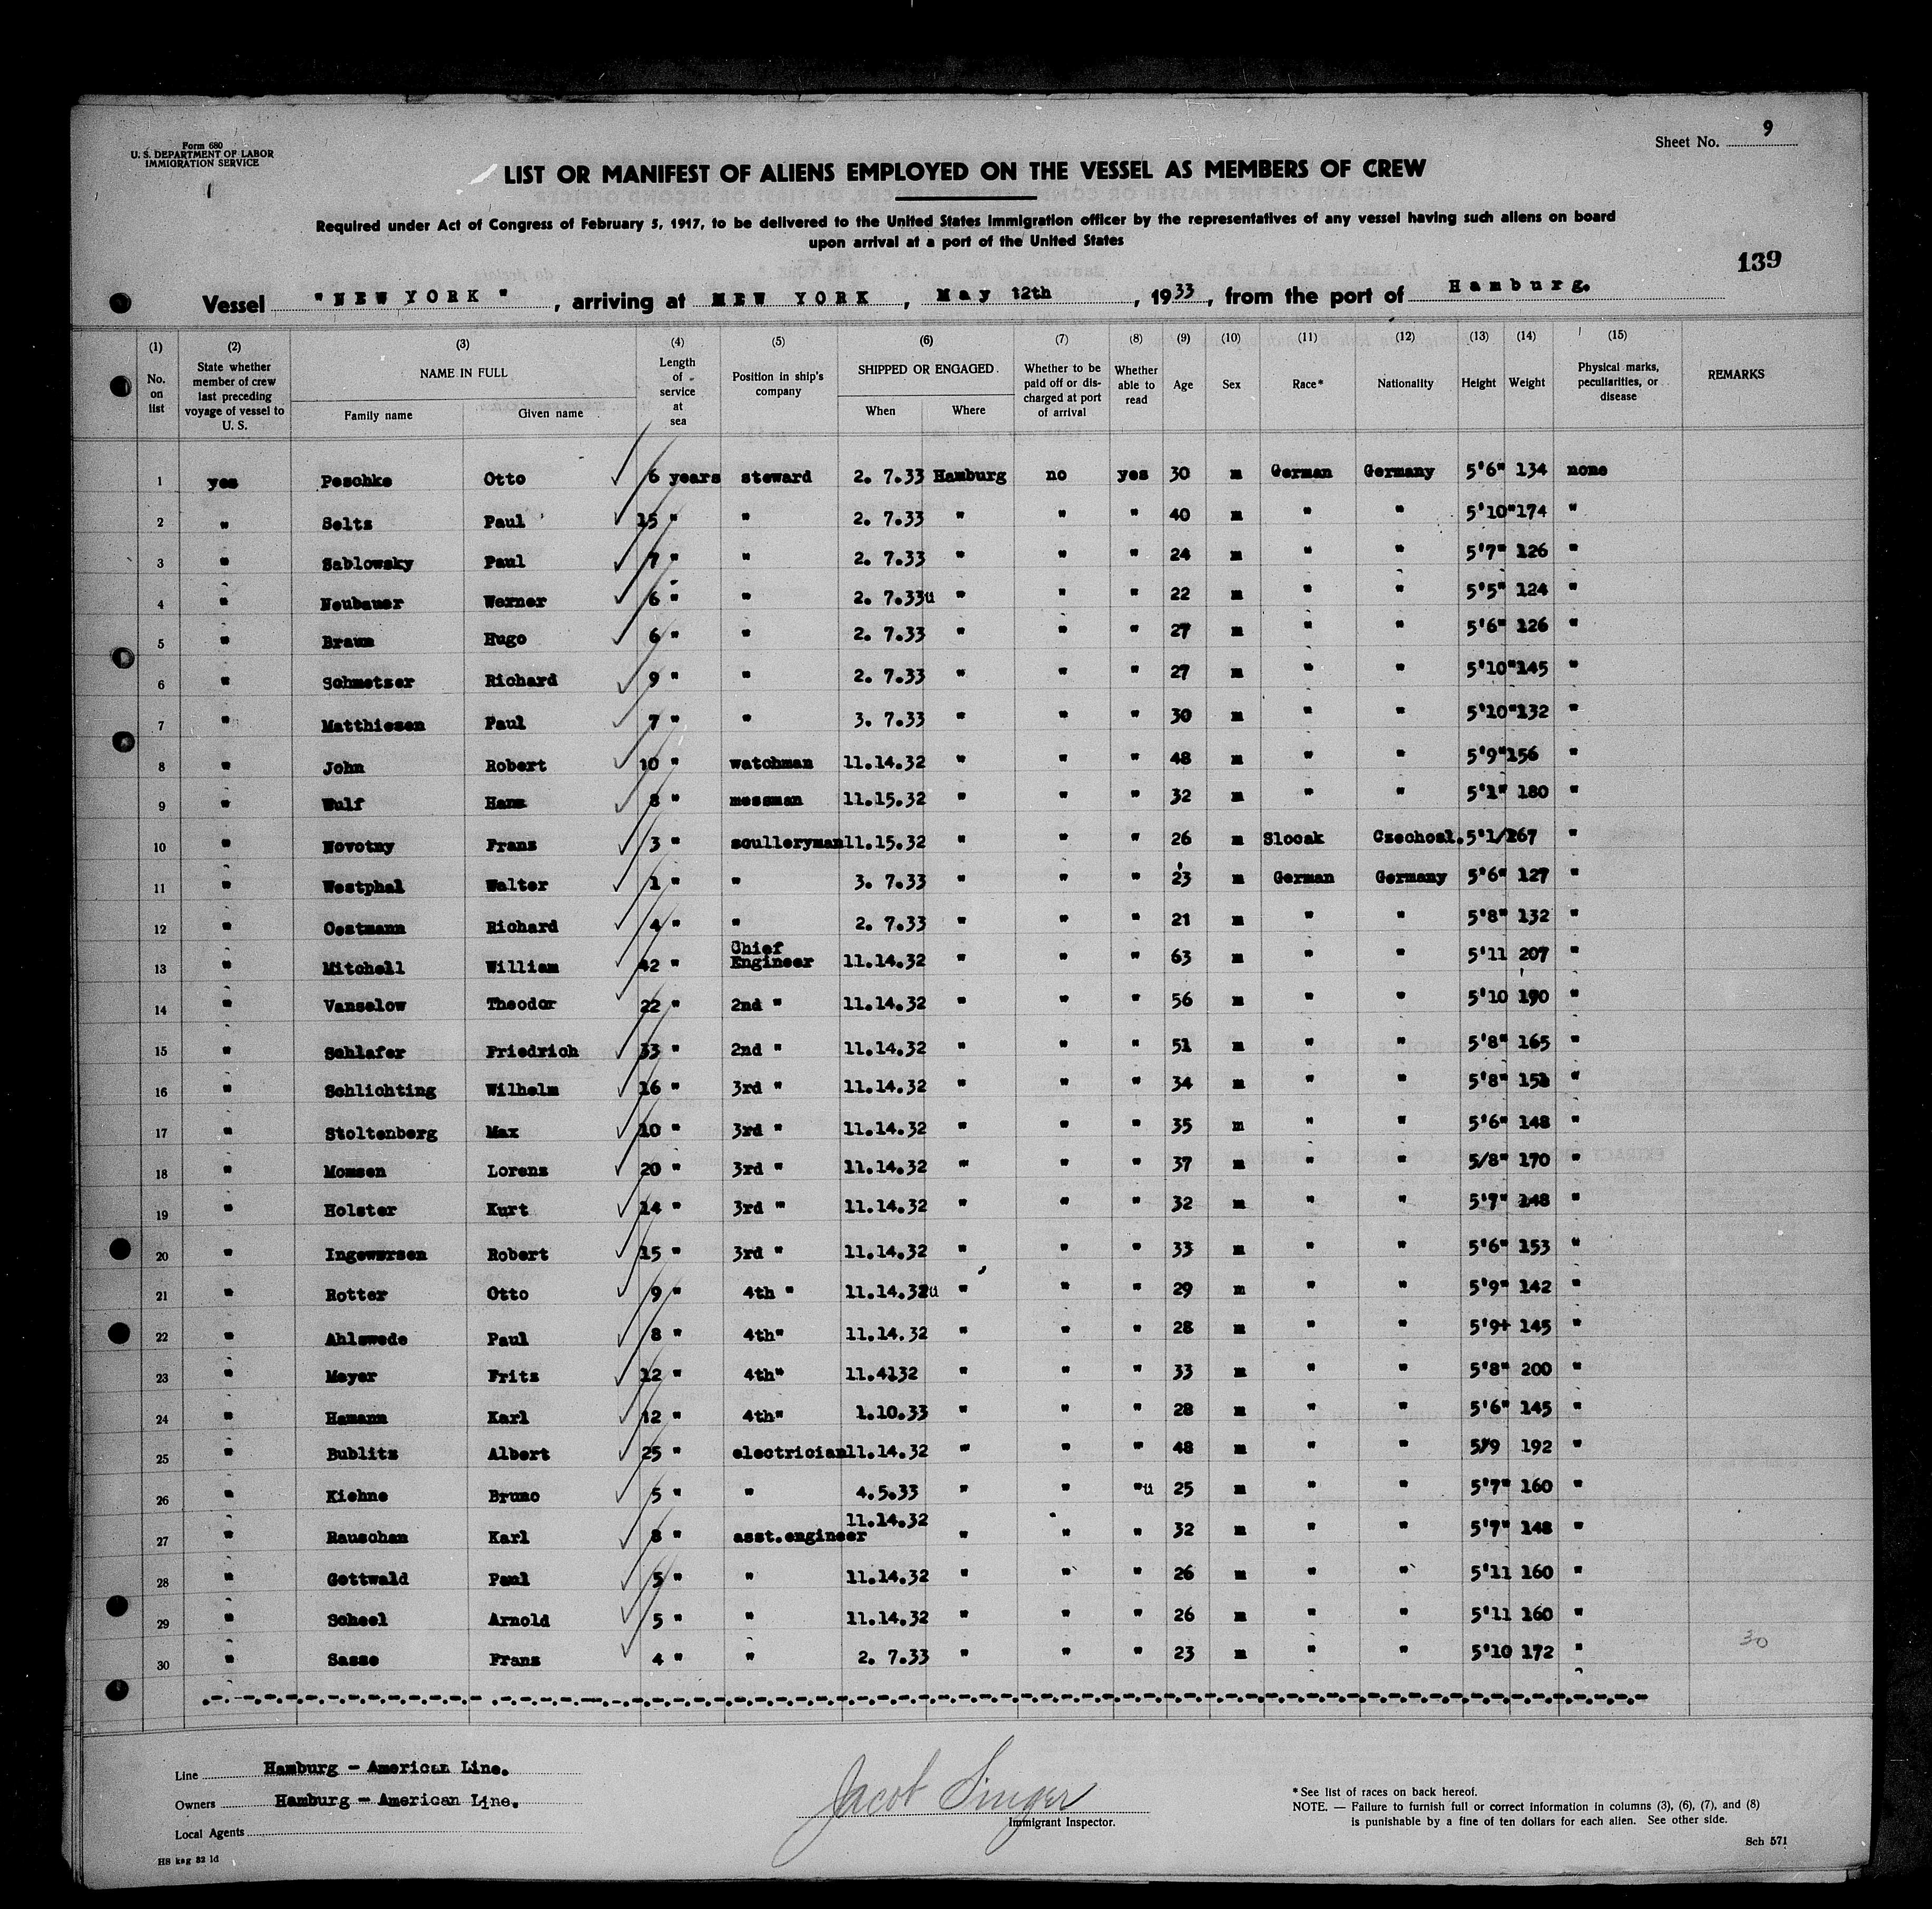 Form 680
U. S. DEPARTMENT OF LABOR
IMMIGRATION SERVICE
Sheet No. 9
LIST OR MANIFEST OF ALIENS EMPLOYED ON THE VESSEL AS MEMBERS OF CREW
Required under Act of Congress of February 5, 1917, to be delivered to the United States immigration officer by the representatives of any vessel having such aliens on board
upon arrival at a port of the United States
139
Vessel "NEW YORK", arriving at NEW YORK, May 12th, 1933, from the port of Hamburg.
(1) (2) (3) (4) (5) (6) (7) (8) (9) (10) (11) (12) (13) (14) (15)
No. on list State whether member of crew last preceding voyage of vessel to U. S. NAME IN FULL Family name Given name Length of service at sea Position in ship's company SHIPPED OR ENGAGED When Where Whether to be paid off or discharged at port of arrival Whether able to read Age Sex Race* Nationality Height Weight Physical marks, peculiarities, or disease REMARKS
1 yes Peschke Otto 6 years steward 2. 7.33 Hamburg no yes 30 m German Germany 5'6" 134 none
2 " Seltz Paul 15 " " 2. 7.33 " " " 40 m " " 5'10" 174 "
3 " Sablowsky Paul 7 " " 2. 7.33 " " " 24 m " " 5'7" 126 "
4 " Neubauer Werner 6 " " 2. 7.33ü " " " 22 m " " 5'5" 124 "
5 " Braun Hugo 6 " " 2. 7.33 " " " 27 m " " 5'6" 126 "
6 " Schmetzer Richard 9 " " 2. 7.33 " " " 27 m " " 5'10" 145 "
7 " Matthiesen Paul 7 " " 3. 7.33 " " " 30 m " " 5'10" 132 "
8 " John Robert 10 " watchman 11.14.32 " " " 48 m " " 5'9" 156 "
9 " Wulf Hans 8 " messman 11.15.32 " " " 32 m " " 5'1" 180 "
10 " Novotny Franz 3 " sculleryman 11.15.32 " " " 26 m Slocak Czechosl. 5'1/ 167 "
11 " Westphal Walter 1 " " 3. 7.33 " " " 23 m German Germany 5'6" 127 "
12 " Oestmann Richard 4 " " 2. 7.33 " " " 21 m " " 5'8" 132 "
13 " Mitchell William 42 " Chief Engineer 11.14.32 " " " 63 m " " 5'11 207 "
14 " Vanselow Theodor 22 " 2nd " 11.14.32 " " " 56 m " " 5'10 190 "
15 " Schlafer Friedrich 33 " 2nd " 11.14.32 " " " 51 m " " 5'8" 165 "
16 " Schlichting Wilhelm 16 " 3rd " 11.14.32 " " " 34 m " " 5'8" "
17 " Stoltenberg Max 10 " 3rd " 11.14.32 " " " 35 m " " 5'6" 148 "
18 " Momsen Lorenz 20 " 3rd " 11.14.32 " " " 37 m " " 5/8" 170 "
19 " Holster Kurt 14 " 3rd " 11.14.32 " " " 32 m " " 5'7" 148 "
20 " Ingewersen Robert 15 " 3rd " 11.14.32 " " " 33 m " " 5'6" 153 "
21 " Rotter Otto 9 " 4th " 11.14.32ü " " " 29 m " " 5'9" 142 "
22 " Ahlswede Paul 8 " 4th" 11.14.32 " " " 28 m " " 5'9+ 145 "
23 " Meyer Fritz 12 " 4th" 11.4132 " " " 33 m " " 5'8" 200 "
24 " Hamann Karl 12 " 4th" 1.10.33 " " " 28 m " " 5'6" 145 "
25 " Bublitz Albert 25 " electrician 11.14.32 " " " 48 m " " 5'9 192 "
26 " Kiehne Bruno 5 " " 4.5.33 " " "ü 25 m " " 5'7" 160 "
27 " Rauschan Karl 8 " asst.engineer 11.14.32 " " " 32 m " " 5'7" 148 "
28 " Gottwald Paul 5 " " 11.14.32 " " " 26 m " " 5'11 160 "
29 " Scheel Arnold 5 " " 11.14.32 " " " 26 m " " 5'11 160 "
30 " Sasse Franz 4 " " 2. 7.33 " " " 23 m " " 5'10 172 " 30
Line Hamburg - American Line.
Owners Hamburg - American Line.
Local Agents
Jacob Singer
Immigrant Inspector.
* See list of races on back hereof.
NOTE. — Failure to furnish full or correct information in columns (3), (6), (7), and (8)
is punishable by a fine of ten dollars for each alien. See other side.
HS kag 32 1d
Sch 571